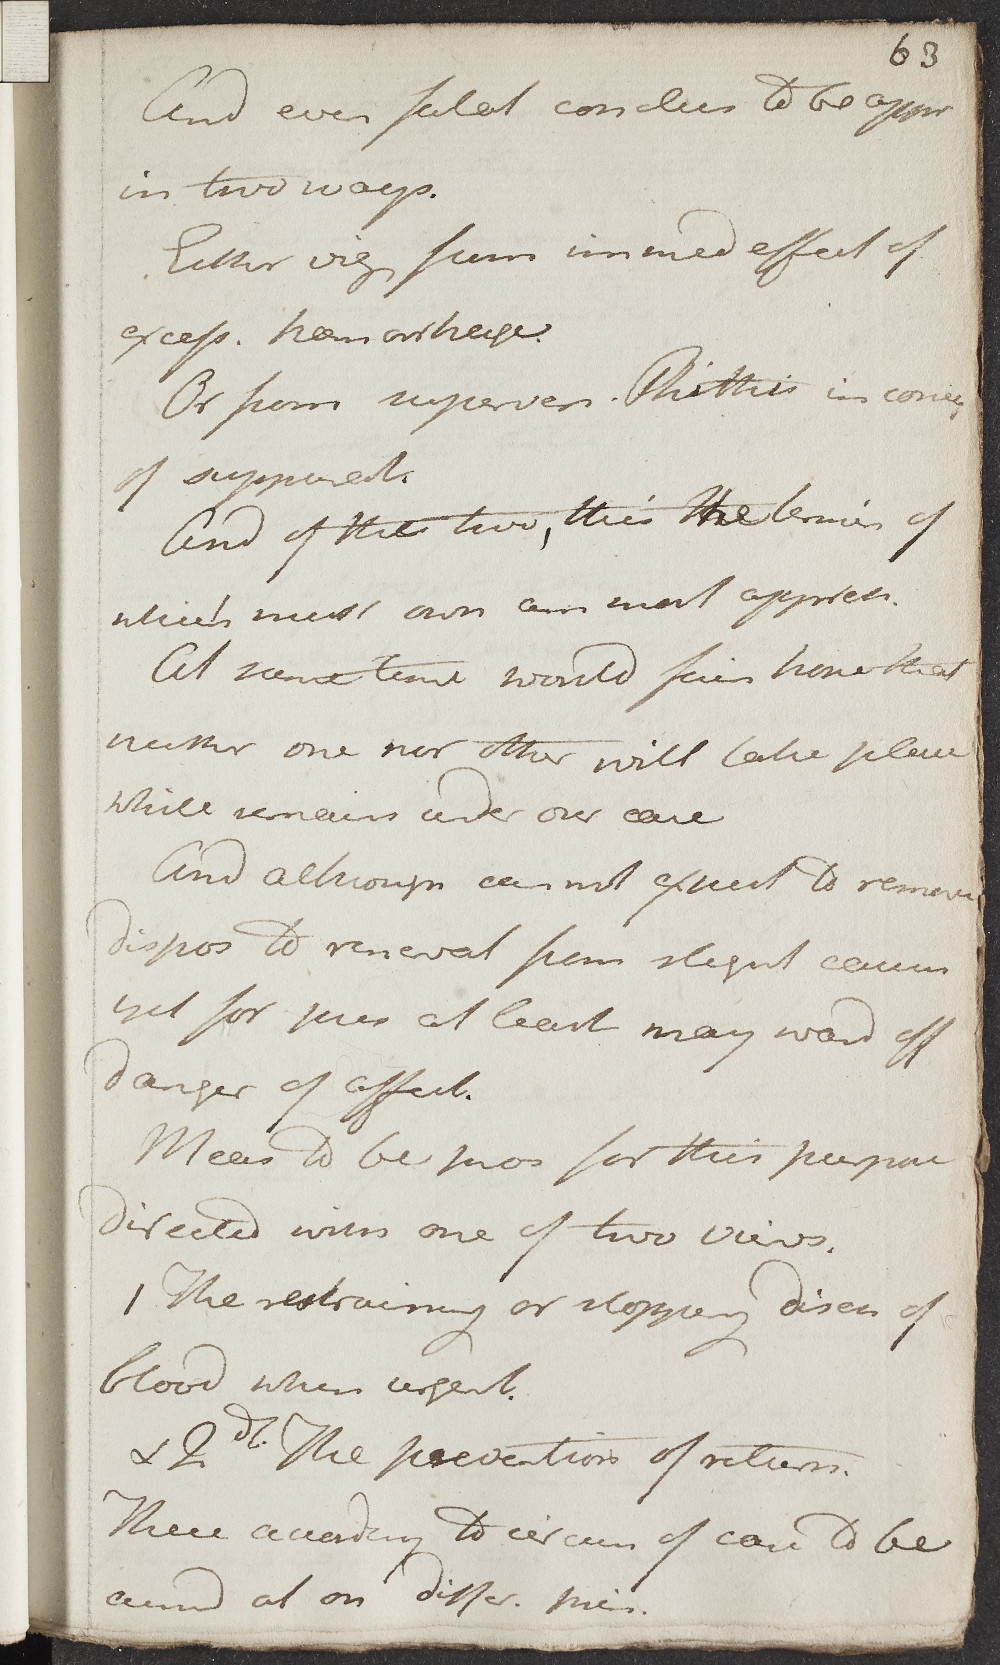 63
And even fatal conclus to be appr
in two ways.
Either viz from immed effect of
excess. hemorrhage.
Or from superven. Phthisis in conseq
of suppurat.
And of these two, this the termin of
which must own am most appreh.
At same time would fain hope that
neither one nor other will take place
while remains under our care
And although cannot expect to remove
dispos to renewal from slight causes
yet for pres at least may ward off
danger of affect.
Meas to be pros for this purpose
directed with one of two views.
1 The restraining or stopping disch of
blood when urgent.
& 2dly. The prevention of return.
These according to circum of case to be
aimd at on differ. prin.